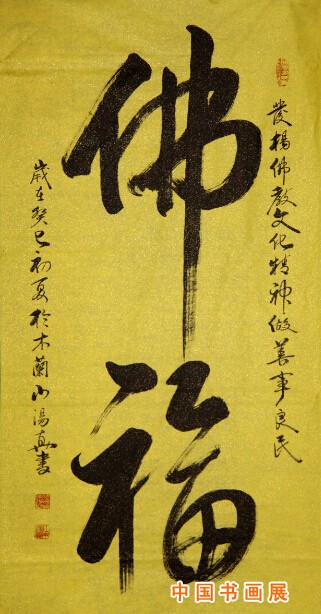 發揚佛教文化精神做善事良民
佛福
歲在癸巳初夏於木蘭山湯真書
中国书画展